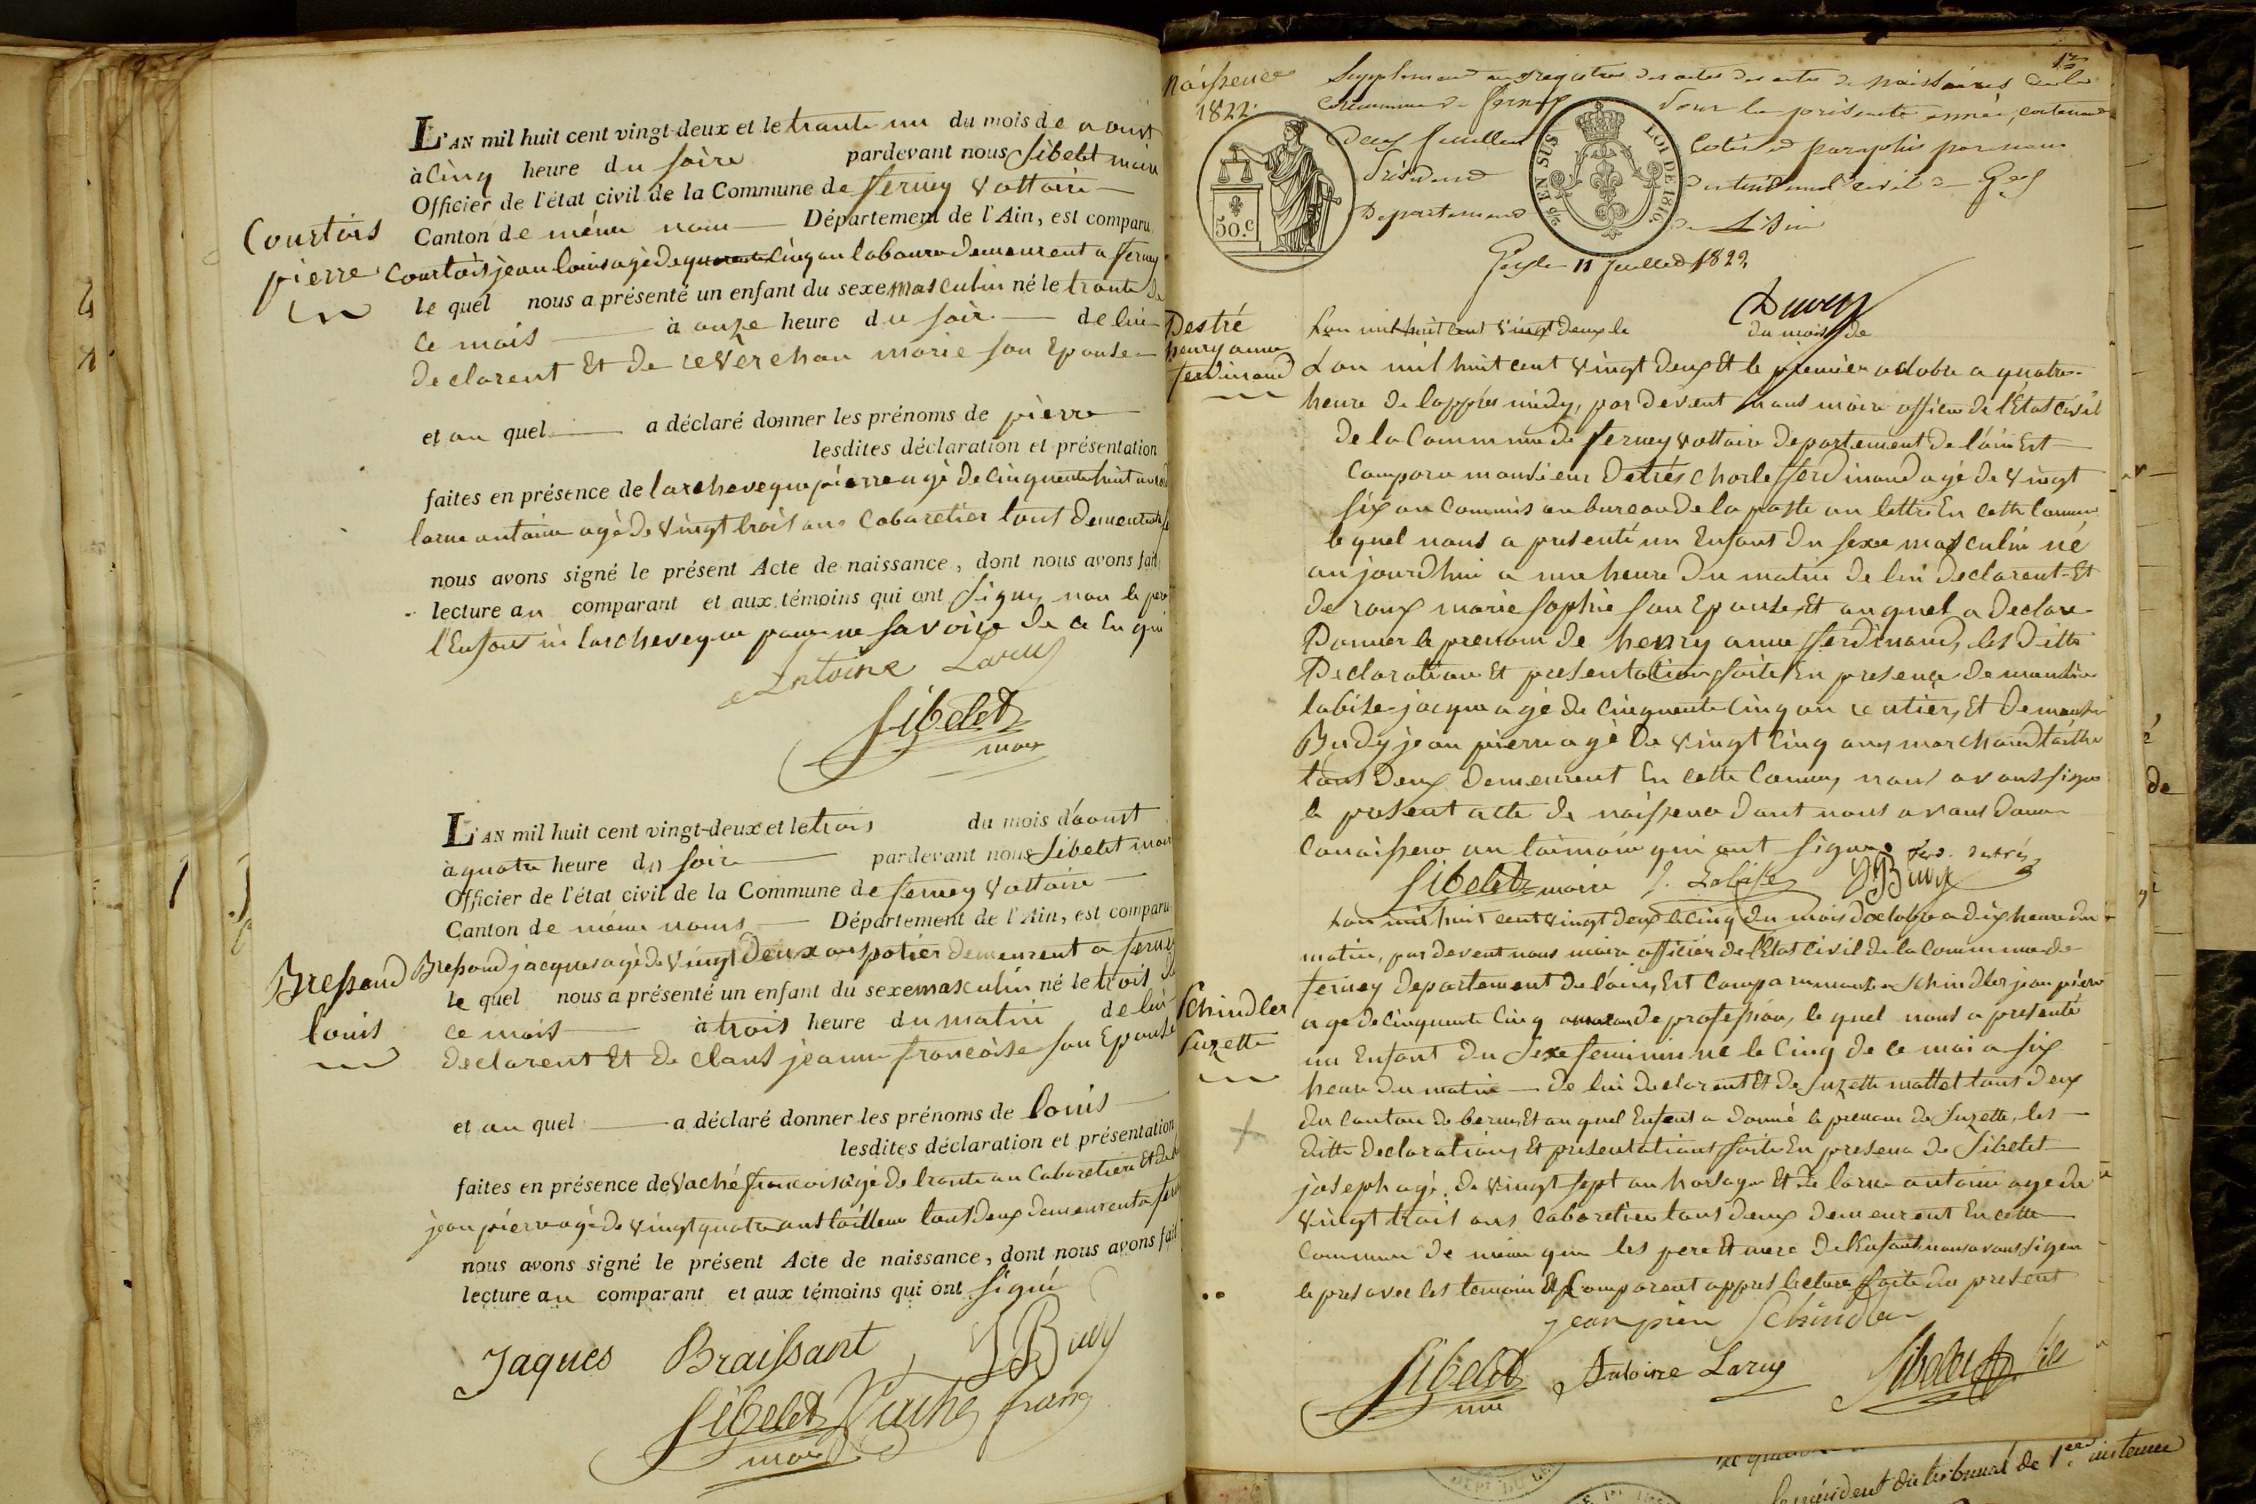 L'AN mil huit cent vingt-deux et le trante un du mois de aoust
à cinq heure du soire pardevant nous Sibelet maire
Officier de l'état civil de la Commune de ferney Voltaire
Canton de même nom Département de l'Ain, est comparu
Courtois
pierre
Courtois jean louis agé de quarante cinq an laboure demeurent a ferney
le quel nous a présenté un enfant du sexe masculin né le trante de
ce mois à onze heure du soir de lui
declarent Et de reverchon marie son Epouse
et au quel a déclaré donner les prénoms de pierre
lesdites déclaration et présentation
faites en présence de larcheveque pierre agé de cinquante huit an
larue antoine agé de vingt trois ans Cabaretier tout demeurent
nous avons signé le présent Acte de naissance, dont nous avons fait
lecture au comparant et aux témoins qui ont signé non le pere
l'Enfant ni larcheveque pour ne savoire de ce En qui
Antoine Larue
Sibelet
maire
L'AN mil huit cent vingt-deux et le trois du mois d'aoust
à quatre heure du soir pardevant nous Sibelet maire
Officier de l'état civil de la Commune de ferney Voltaire
Canton de même noms Département de l'Ain, est comparu
Bressand
louis
Bressand jacques agé de vingt deux ans potier demeurent a ferney
le quel nous a présenté un enfant du sexe masculin né le trois de
ce mois à trois heure du matin de lui
declarent Et de Claus jeanne francoise son Epouse
et au quel a déclaré donner les prénoms de louis
lesdites déclaration et présentation
faites en présence de Vaché francois agé de trante an Cabaretiere Et de
jean pierre agé de vingt quatre ans tailleur tout deux demeurent a ferney
nous avons signé le présent Acte de naissance, dont nous avons fait
lecture au comparant et aux témoins qui ont signé
Jaques Braissant
Sibelet Vaché
maire
Naissence
1822
Supplement au registre des actes de naissances de la
Commune de ferney pour la presente année, contenant
deux feuillets Cotés et paraphés par nous
President
Departement de L'Ain
50.c
EN SUS
LOI DE 1816
Gex le 11 Juillet 1822
Destré
henry anne
ferdinand
Lan mil huit cent vingt deux le du mois de
Lan mil huit cent vingt deux Et le premier octobre a quatre
heure de l'apprés midy, par devent nous maire officier de l'Etat civil
de la Commune de ferney Voltaire departement de l'ain Est
Comparu monsieur Detrés Charle ferdinand agé de vingt
six an Commis au bureau de la poste au lettre En cette Commune
le quel nous a presenté un Enfant du sexe masculin né
aujourdhui a une heure du matin de lui declarent Et
de roux marie sophie son Epouse, Et au quel a declare
Donner le prenom de henry anne ferdinand, les ditte
Declaration Et presentation faite En presence de monsieur
labise jacque agé de cinquante cinq an rentier, Et de monsieur
Budy jean pierre agé de vingt cinq ans marchand
tous deux demeurent En cette Commune, nous avons signé
le present acte de naissence dont nous avons donné
Conaissence au temoin qui ont signé
Sibelet maire J. Labise ferd. Detrés
Schindler
Suzette
Lan mil huit cent vingt deux le cinq du mois d'octobre a dix heure du
matin, par devent nous maire officier de l'Etat Civil de la Commune de
ferney departement de l'ain, Est Comparu monsieur Schindler jean pierre
agé de cinquante cinq de profession, le quel nous a presenté
un Enfant du sexe feminin né le cinq de ce moi a six
heure du matin de lui declarent Et de Suzette mottet tout deux
du Canton de berne, Et au quel Enfent a donné le prenom de Suzette, les
ditte declarations Et presentations faite En presence de Sibelet
joseph agé de vingt sept an horloger Et de larue antoine agé de
vingt trois ans Cabaretier tous deux demeurent En cette
Commune de même que les pere Et mere de l'Enfant nous avons signer
le pres avec les temoin Et Comparent appres lecture faite du present
jean pierre Schindler
Sibelet Antoine Larue Sibelet fils
maire
president du tribunal de 1ere instance